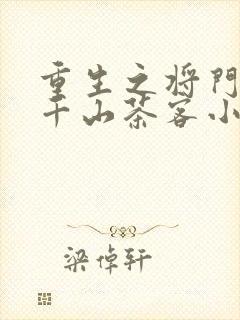 重生之将门
千山茶客小
梁倬轩